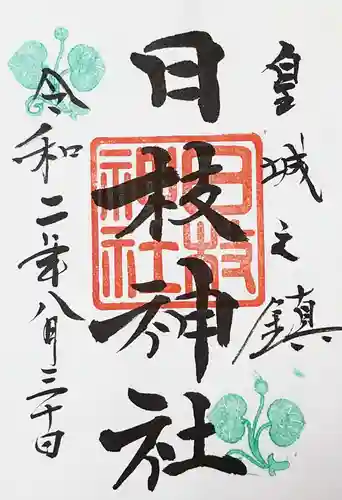 皇城之鎮
日枝神社
令和二年八月三十日
日枝
神社